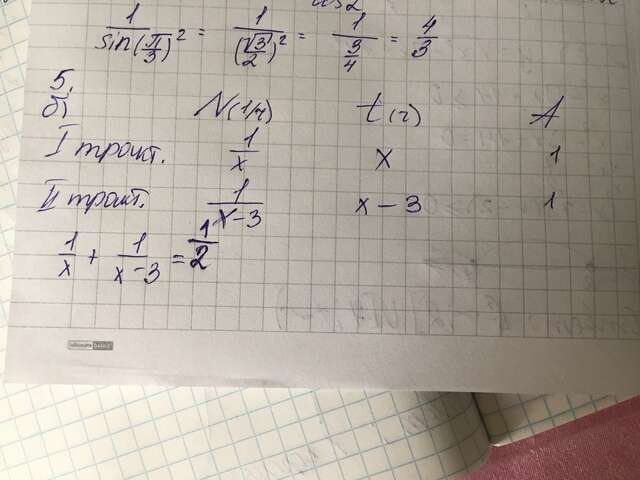 1/sin(π/3)² = 1/(√3/2)² = 1/(3/4) = 4/3
5.
б) N(1/ч) t(ч) A
I тракт. 1/x x 1
II тракт. 1/(x-3) x-3 1
1/x + 1/(x-3) = 1/2